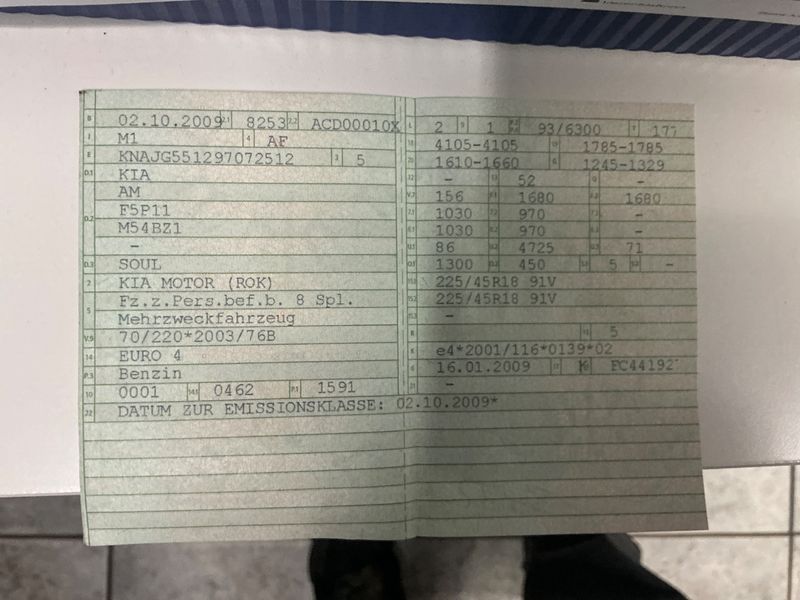 B 02.10.2009 2.1 8253 2.2 ACD00010X
J M1 4 AF
E KNAJG551297072512 3 5
D.1 KIA
AM
D.2 F5P11
M54BZ1
-
D.3 SOUL
2 KIA MOTOR (ROK)
5 Fz.z.Pers.bef.b. 8 Spl.
Mehrzweckfahrzeug
V.9 70/220*2003/76B
14 EURO 4
P.3 Benzin
10 0001 14.1 0462 P.1 1591
22 DATUM ZUR EMISSIONSKLASSE: 02.10.2009*
L 2 9 1 93/6300 T 177
18 4105-4105 19 1785-1785
20 1610-1660 G 1245-1329
12 - 13 52 Q -
V.7 156 F.1 1680 F.2 1680
7.1 1030 7.2 970 7.3 -
8.1 1030 8.2 970 8.3 -
U.1 86 U.2 4725 U.3 71
O.1 1300 O.2 450 S.1 5 S.2 -
15.1 225/45R18 91V
15.2 225/45R18 91V
15.3 -
R 11 5
K e4*2001/116*0139*02
6 16.01.2009 17 K 16 FC44192
21 -